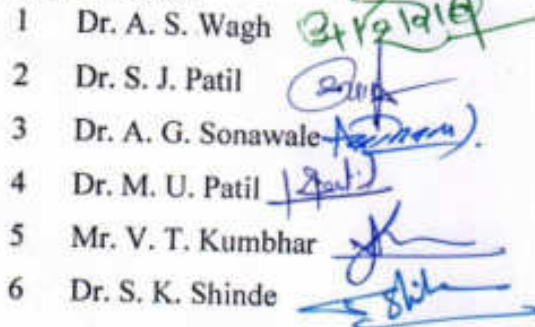 1 Dr. A. S. Wagh
2 Dr. S. J. Patil
3 Dr. A. G. Sonawale
4 Dr. M. U. Patil
5 Mr. V. T. Kumbhar
6 Dr. S. K. Shinde